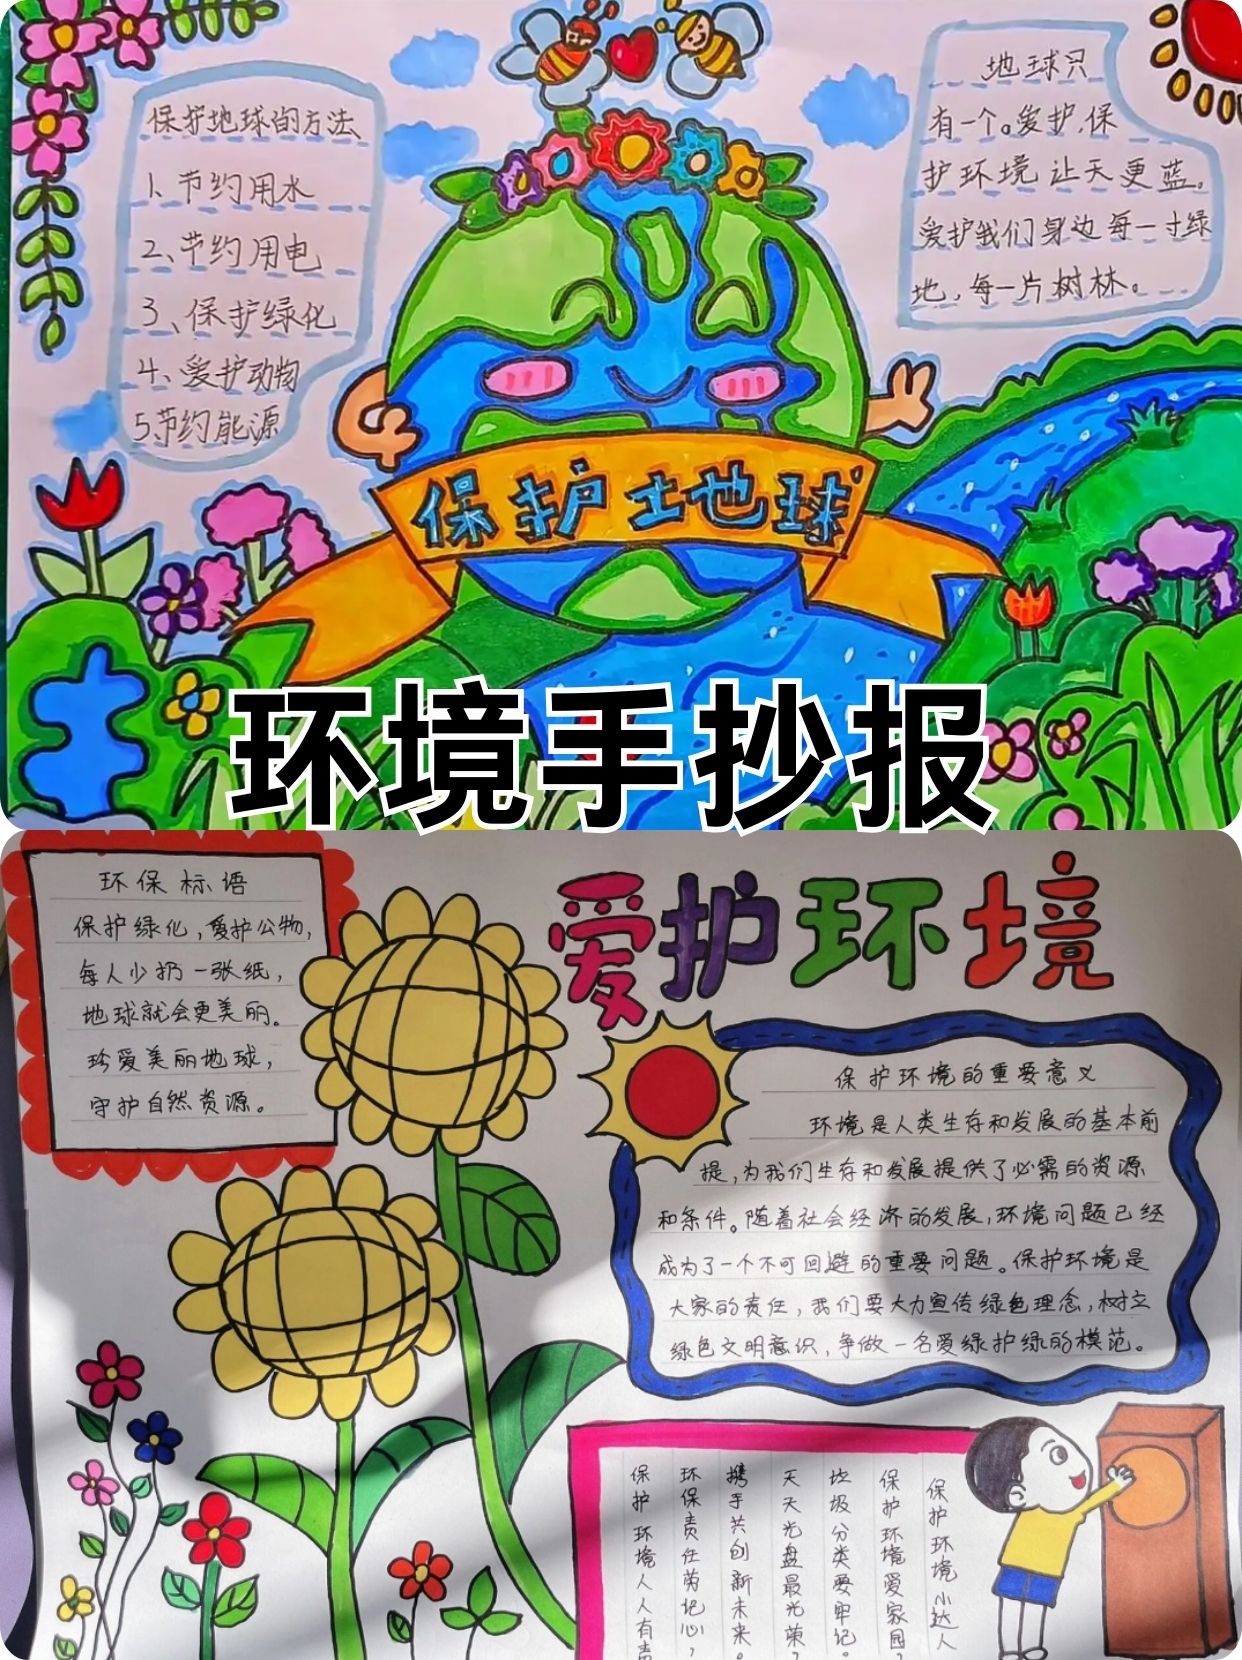 保护地球的方法
1、节约用水
2、节约用电
3、保护绿化
4、爱护动物
5节约能源
地球只
有一个。爱护,保
护环境让天更蓝。
爱护我们身边每一寸绿
地,每一片树林。
保护土地球
环境手抄报
环保标语
保护绿化,爱护公物,
每人少扔一张纸,
地球就会更美丽。
珍爱美丽地球,
守护自然资源。
爱护环境
保护环境的重要意义
环境是人类生存和发展的基本前
提,为我们生存和发展提供了必需的资源
和条件。随着社会经济的发展,环境问题已经
成为了一个不可回避的重要问题。保护环境是
大家的责任,我们要大力宣传绿色理念,树立
绿色文明意识,争做一名爱绿护绿的模范。
保护环境小达人
保护环境爱家园,
垃圾分类要牢记。
天天光盘最光荣,
携手共创新未来。
环保责任劳记心,
保护环境人人有责